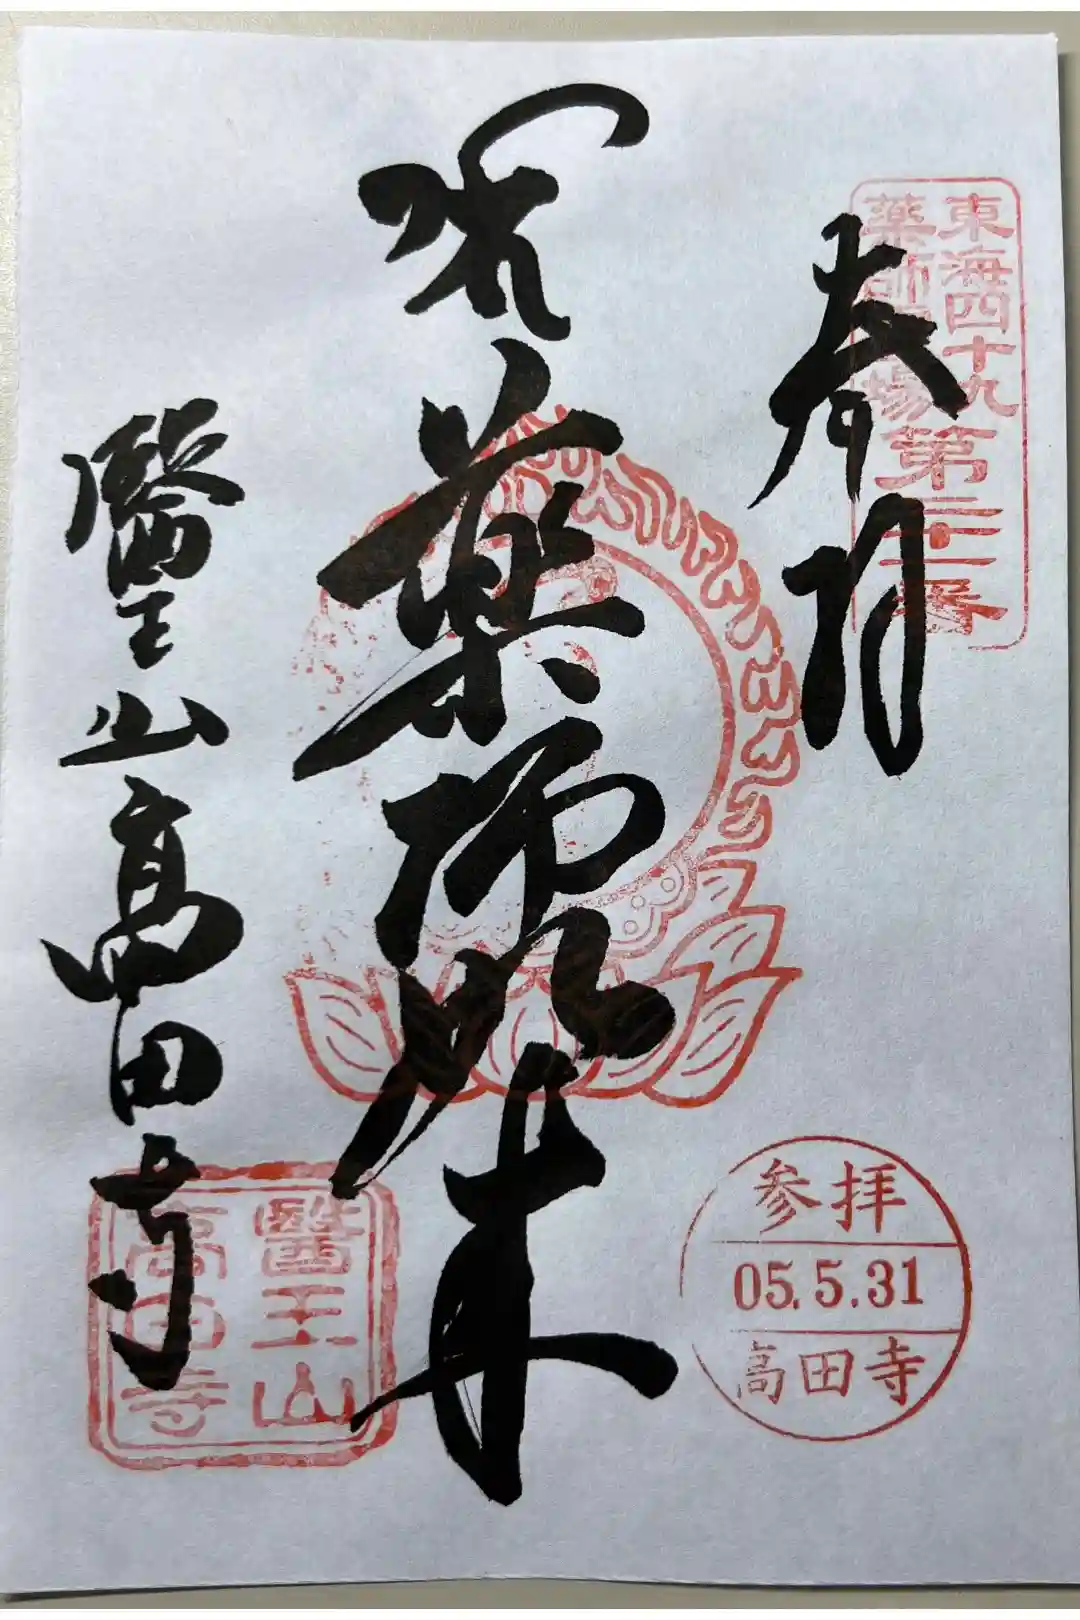 東海四十九
薬師霊場第二十一番
奉拝
薬師如来
醫王山高田寺
醫王山
高田寺
参拝
05.5.31
高田寺